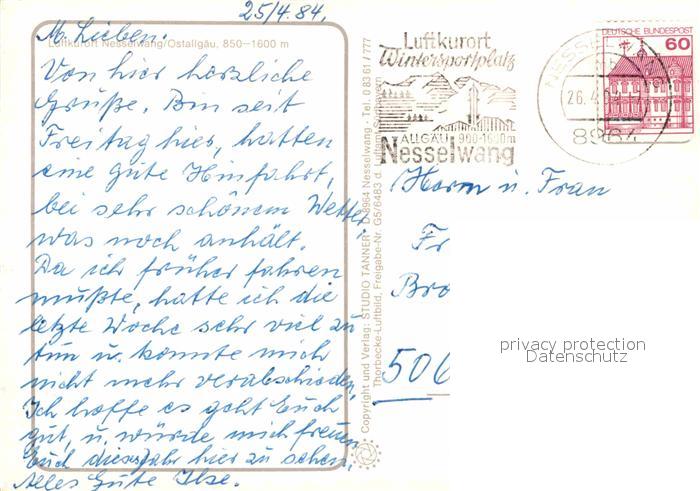 25/4.84.
M. Lieben.
Luftkurort Nesselwang/Ostallgäu, 850—1600 m
Von hier herzliche
Grüße. Bin seit
Freitag hier, hatten
eine gute Hinfahrt,
bei sehr schönem Wetter,
was noch anhält.
Da ich früher fahren
mußte, hatte ich die
letzte Woche sehr viel zu
tun u. konnte mich
nicht mehr verabschieden,
Ich hoffe es geht Euch
gut, u. würde mich freuen
Euch dieses Jahr hier zu sehen,
Alles Gute Ilse.
Copyright und Verlag: STUDIO TANNER · D-8964 Nesselwang · Tel. 0 83 61 / 777
Thorbecke-Luftbild, Freigabe-Nr. G5/6483 d.
Luftkurort
Wintersportplatz
ALLGÄU 900-1600m
Nesselwang
NESSELWANG
26.4.84
8964
DEUTSCHE BUNDESPOST
60
Herrn u. Frau
Fr
Bro
506
privacy protection
Datenschutz